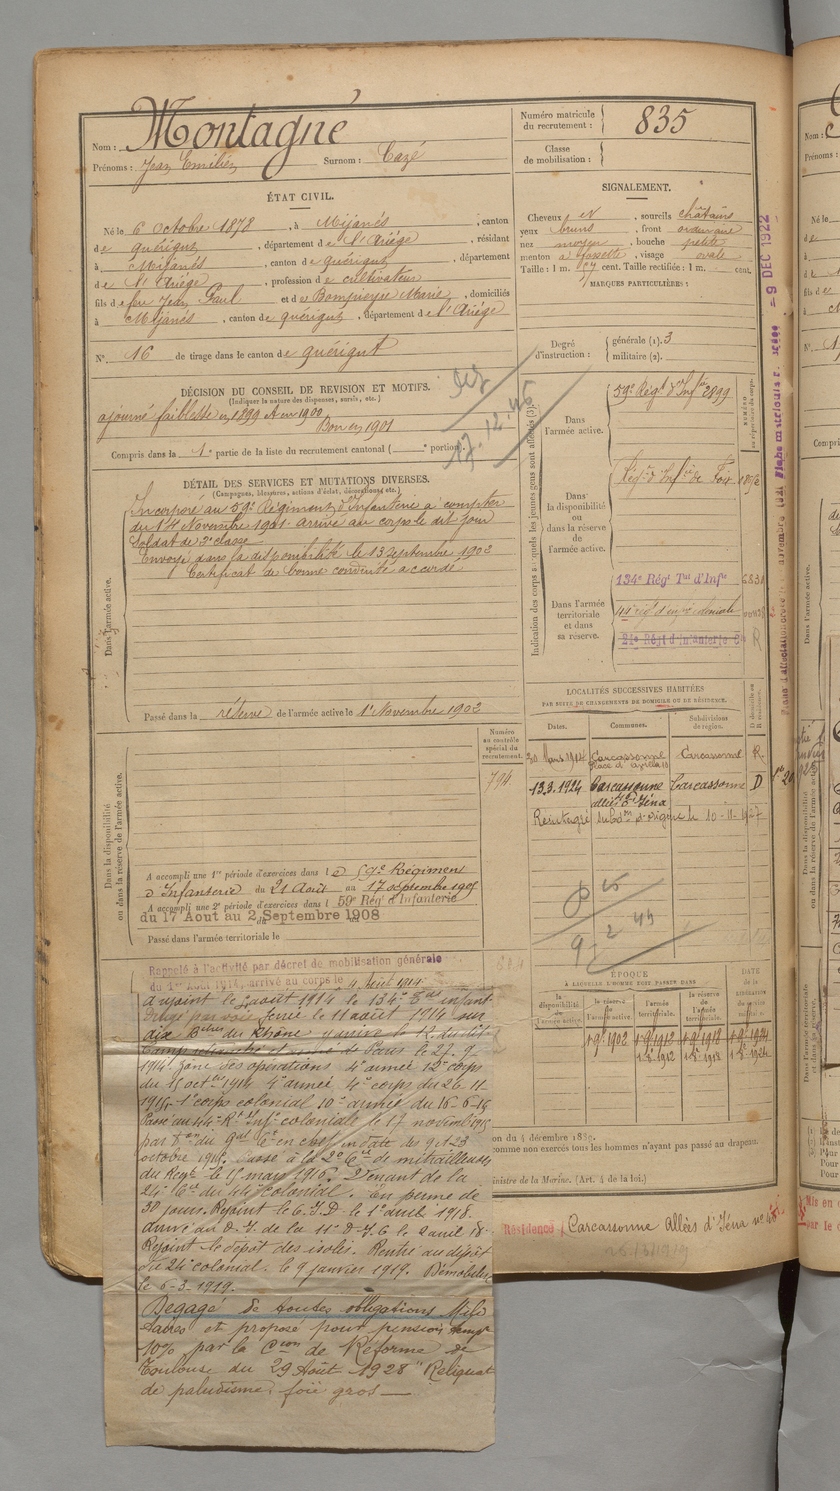 Nom : Montagné
Prénoms : Jean Emilien Surnom : Cazé
Numéro matricule du recrutement : 835
Classe de mobilisation :
ÉTAT CIVIL.
Né le 6 octobre 1878, à Mijanès, canton
de quérigut, département de l'Ariège, résidant
à Mijanès, canton de quérigut, département
de l'Ariège, profession de cultivateur
fils de feu Jean Paul et de Marie, domiciliés
à Mijanès, canton de quérigut, département de l'Ariège
N° 16 de tirage dans le canton de quérigut
SIGNALEMENT.
Cheveux et , sourcils châtains
yeux bruns , front ordinaire
nez moyen , bouche petite
menton à fossette , visage ovale
Taille : 1 m. cent. Taille rectifiée : 1 m. cent.
MARQUES PARTICULIÈRES :
Degré d'instruction : générale (1). 3
militaire (2).
DÉCISION DU CONSEIL DE REVISION ET MOTIFS.
(Indiquer la nature des dispenses, sursis, etc.)
ajourné faiblesse en 1899 et en 1900
Bon en 1901
Compris dans la 1e partie de la liste du recrutement cantonal ( e portion).
17.12.45
DÉTAIL DES SERVICES ET MUTATIONS DIVERSES.
(Campagnes, blessures, actions d'éclat, décorations, etc.)
Dans l'armée active.
Incorporé au 59e Régiment d'Infanterie à compter
du 14 Novembre 1901. arrivé au corps le dit jour
Soldat de 2e classe
Envoyé dans la disponibilité le 13 Septembre 1902
Certificat de bonne conduite accordé
Passé dans la réserve de l'armée active le 1er Novembre 1902
Indication des corps auxquels les jeunes gens sont affectés (3).
Dans l'armée active.
59e Régt d'Infie 2899
Dans la disponibilité ou dans la réserve de l'armée active.
Régt d'Infie de Foix
Dans l'armée territoriale et dans sa réserve.
134e Régt Tal d'Infie
44e régt d'infie coloniale
24e Régt d'Infanterie Cale R
- 9 DEC 1922
LOCALITÉS SUCCESSIVES HABITÉES
PAR SUITE DE CHANGEMENTS DE DOMICILE OU DE RÉSIDENCE.
Dates. Communes. Subdivisions de région. D domicile ou R résidence.
Mars 1914 Carcassonne Carcassonne R.
13.3.1924 Carcassonne Carcassonne D
allées d'Iéna
Réintégré Subdon d'origine le 10-11-1927
Dans la disponibilité ou dans la réserve de l'armée active.
Numéro au contrôle spécial du recrutement.
794
A accompli une 1re période d'exercices dans le 59e Régiment
d'Infanterie du 21 Août au 17 septembre 1905
A accompli une 2e période d'exercices dans le 59e Régt d'Infanterie
du 17 Aout au 2 Septembre 1908
Passé dans l'armée territoriale le
ÉPOQUE
À LAQUELLE L'HOMME DOIT PASSER DANS
DATE de la LIBÉRATION du service militaire
la disponibilité de l'armée active. la réserve de l'armée active. l'armée territoriale. la réserve de l'armée territoriale.
1-9-1902 1-9-1912 1-9-1918 1-9-1924
Rappelé à l'activité par décret de mobilisation générale
du 1er Août 1914, arrivé au corps le 4 Août 1914
a rejoint le août 1914 le 134e Tal infant.
Dirigé par voie ferrée le 11 août 1914 sur
du Rhône y arrive le 12 du dit
Paris le 27.9
1914. Zone des opérations 4e armée 12e corps
du 15 octbre 1914 4e armée 4e corps du 26-11
1915- 1er corps colonial 10e armée du 16-6-15
Passé au 44e Rt Infie coloniale le 17 novembre 1915
par Don du Gral Ct en chef en date des 9 et 23
octobre 1915. Passé à la 2e Cie de mitrailleuses
du Regt le 15 mars 1916. Venant de la
24e Cie du 44e colonial. En perme de
30 jours. Rejoint le C.I.D. le 1er avril 1918.
arrivé au D.I. de la 11e D.I.C le 2 avril 18.
Rejoint le dépôt des isolés. Rentré au dépôt
du 24e colonial. le 9 janvier 1919. Démobilisé
le 6-3-1919.
Dégagé de toutes obligations Mili-
taires et proposé pour pension temp
10% par la Cion de Réforme de
Toulouse du 29 Août 1928 "Reliquat
de paludisme, foie gros —
comme non exercés tous les hommes n'ayant pas passé au drapeau.
ministre de la Marine. (Art. 4 de la loi.)
Résidence Carcassonne Allées d'Iéna no 48